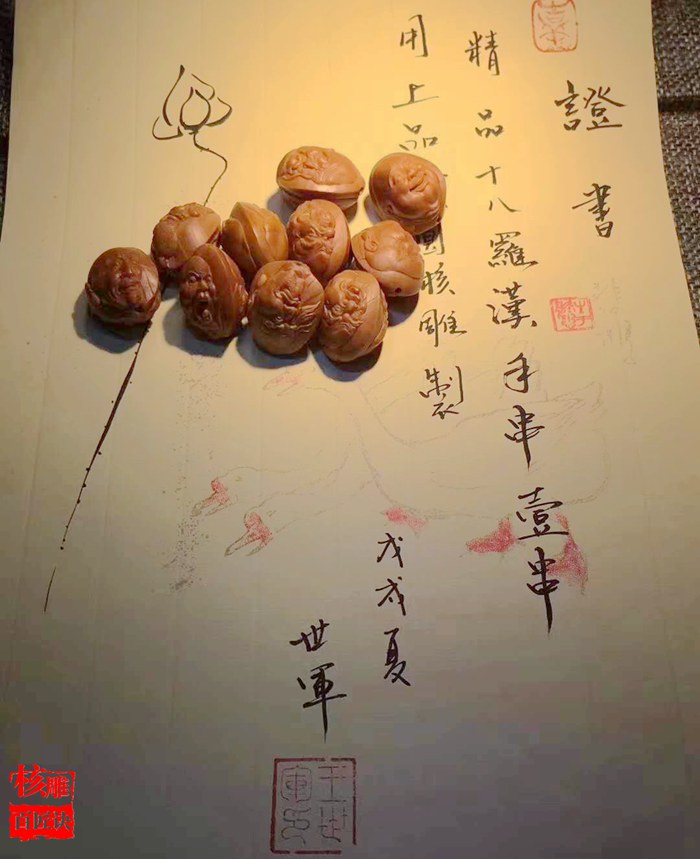 證書
精品十八羅漢手串壹串
用上品圓核雕製
戊戌夏
世軍
王世軍印
核雕
百匠铁